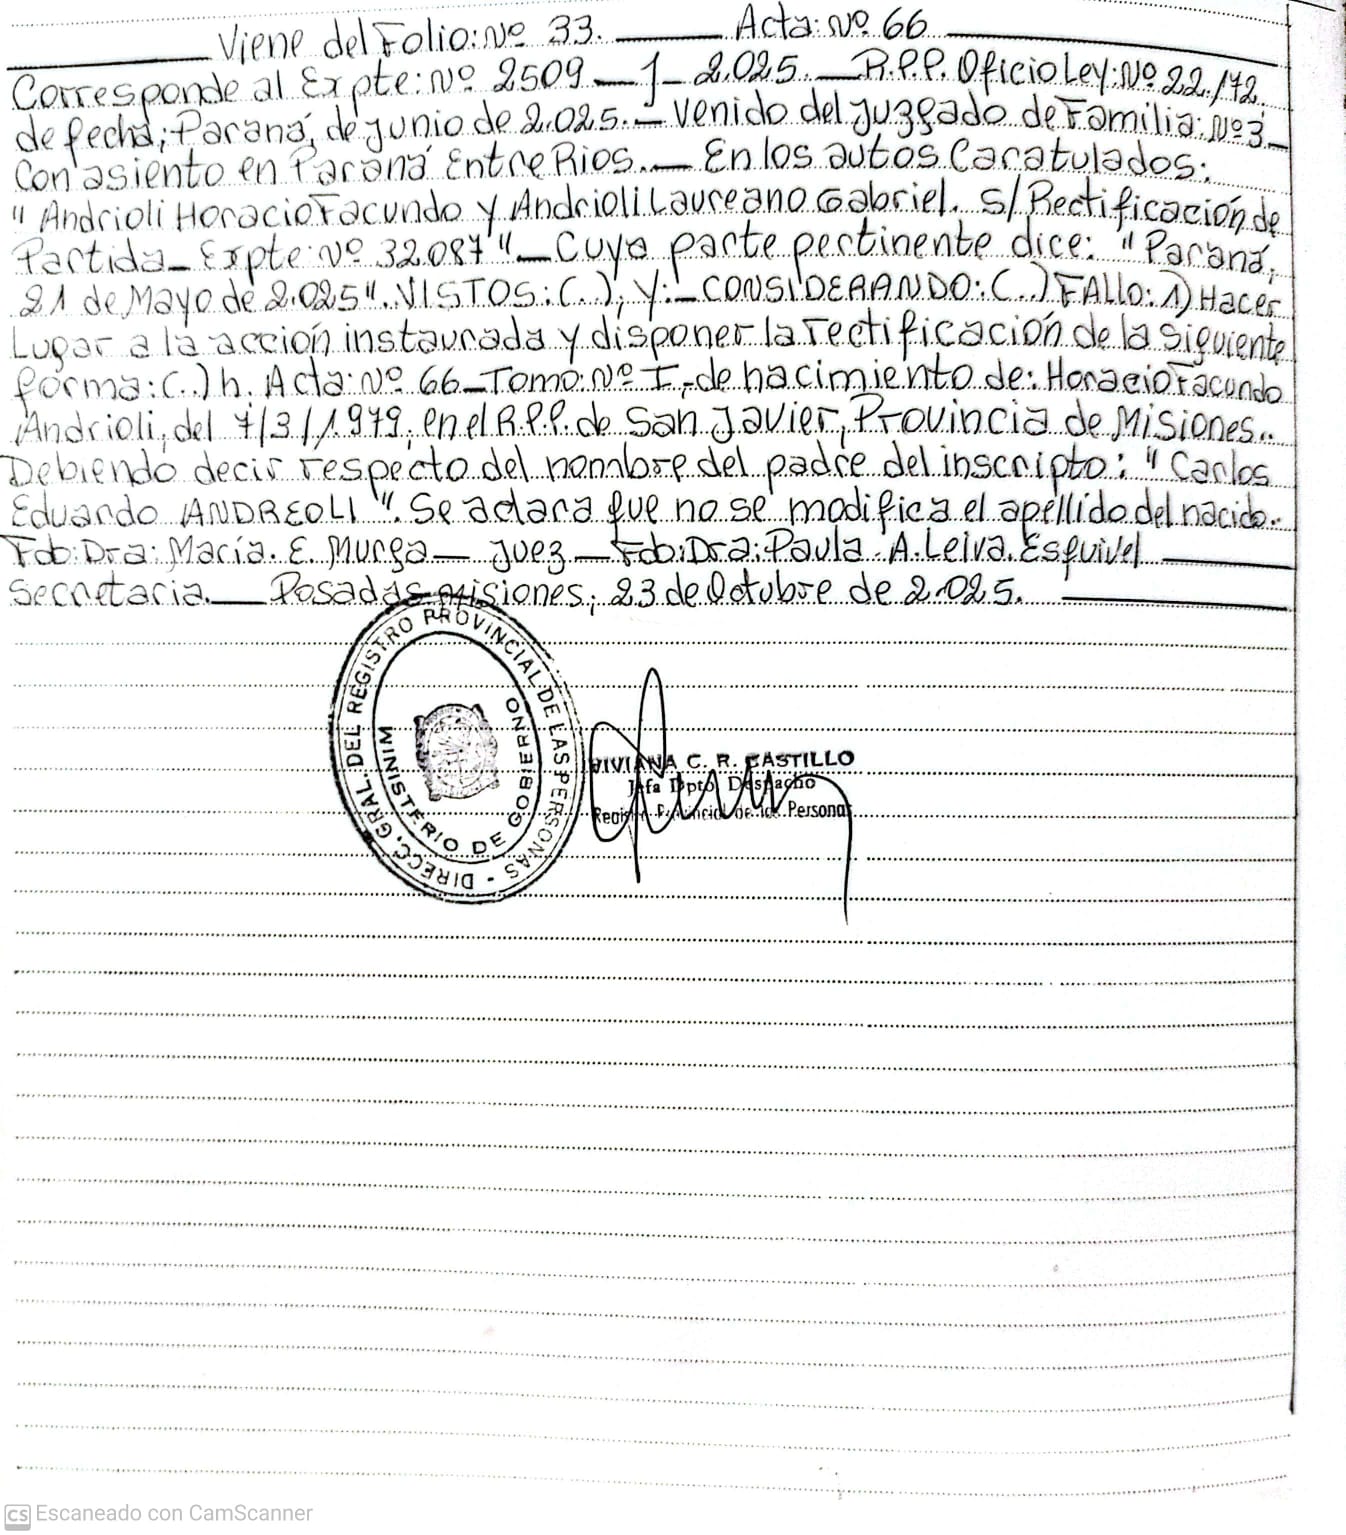 Viene del Folio: Nº 33. Acta: Nº 66
Corresponde al Expte: Nº 2509 - 1 - 2.025. R.P.P. Oficio Ley: Nº 22./72.
de fecha; Paraná, de junio de 2.025. - Venido del Juzgado de Familia: Nº 3
Con asiento en Paraná Entre Rios. - En los autos Caratulados:
" Andrioli Horacio Facundo y Andrioli Laureano Gabriel. S/ Rectificación de
Partida - Expte: Nº 32.087 " - Cuya parte pertinente dice: " Paraná,
21 de Mayo de 2.025". VISTOS: (..), y: - CONSIDERANDO: (..) FALLO: 1) Hacer
Lugar a la acción instaurada y disponer la rectificación de la siguiente
forma: (..) h. Acta: Nº 66 - Tomo: Nº I, - de nacimiento de: Horacio Facundo
Andrioli, del 7/3/1.979, en el R.P.P. de San Javier, Provincia de Misiones..
Debiendo decir respecto del nombre del padre del inscripto: " Carlos
Eduardo ANDREOLI ". Se aclara que no se modifica el apellido del nacido.
Fdo: Dra: María. E. Murga - Juez - Fdo: Dra: Paula. A. Leiva. Esquivel
Secretaria. - Posadas Misiones; 23 de Octubre de 2.025.
DIRECC. GRAL. DEL REGISTRO PROVINCIAL DE LAS PERSONAS -
MINISTERIO DE GOBIERNO
VIVIANA C. R. CASTILLO
Jefa Dpto. Despacho
Registro Provincial de las Personas
CS Escaneado con CamScanner